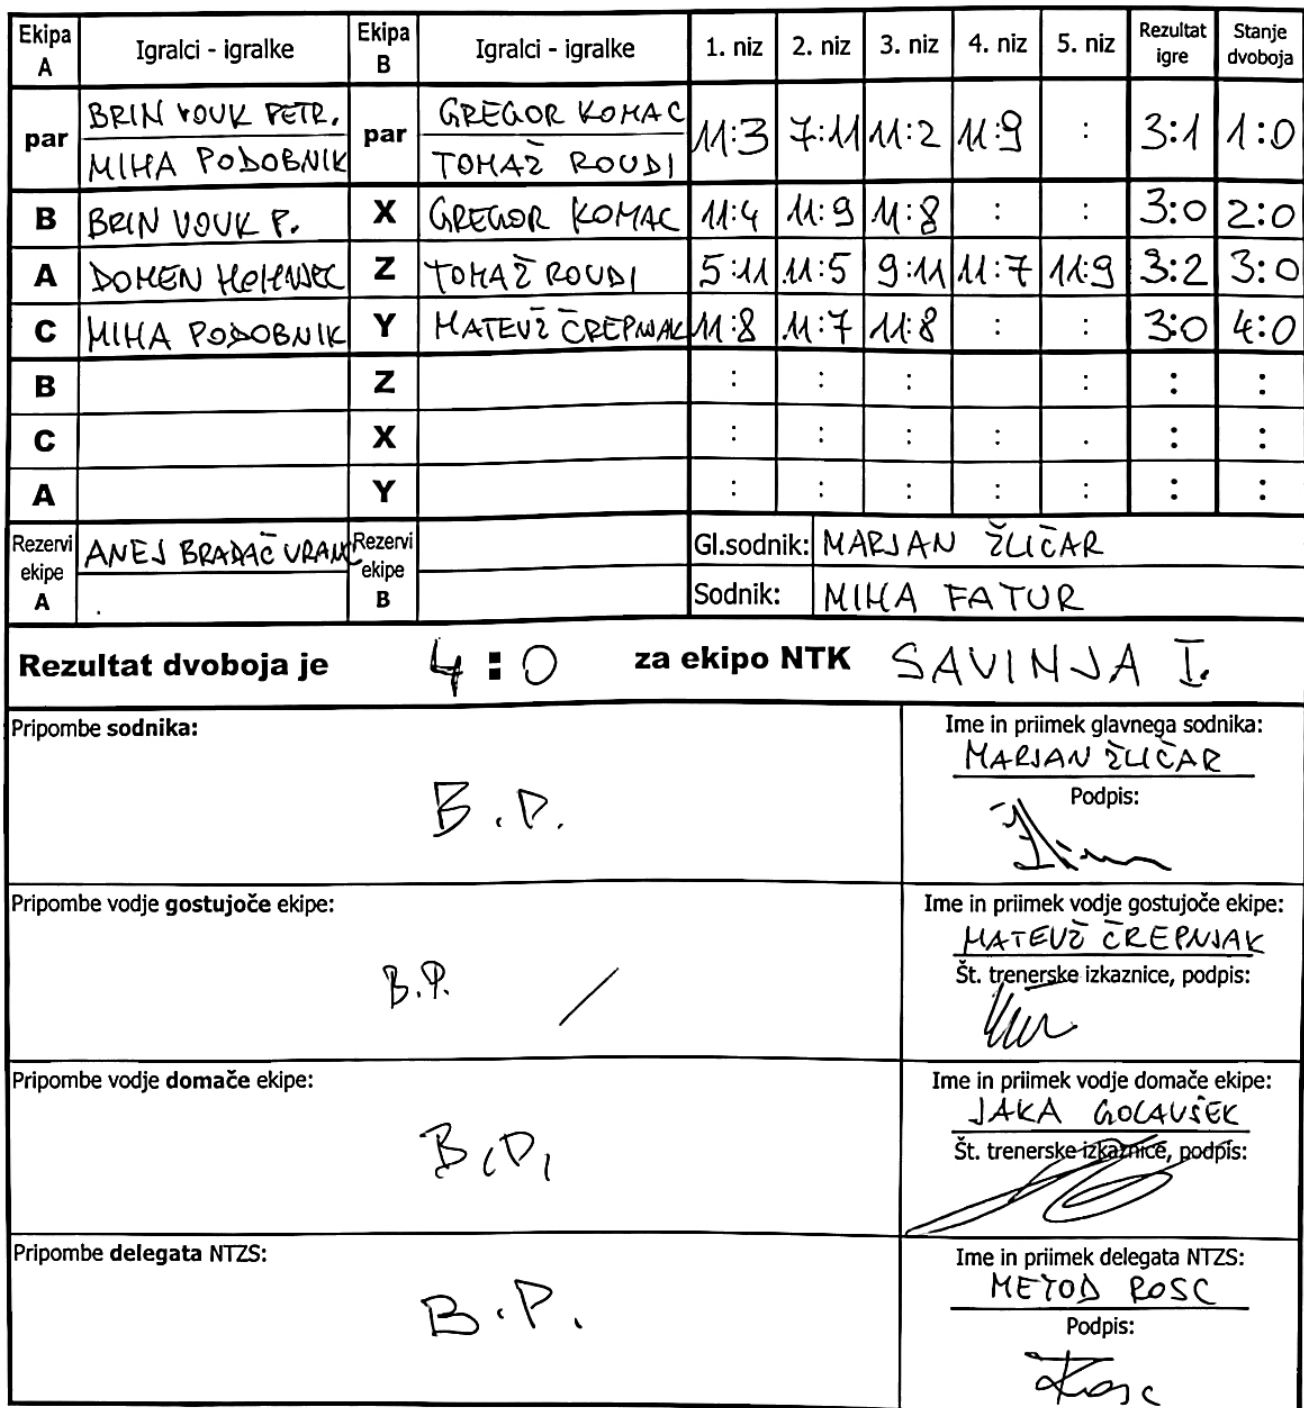 Ekipa A Igralci - igralke Ekipa B Igralci - igralke 1. niz 2. niz 3. niz 4. niz 5. niz Rezultat igre Stanje dvoboja
par BRIN VOUK PETR. par GREGOR KOMAC 11:3 7:11 11:2 11:9 : 3:1 1:0
MIHA PODOBNIK TOMAŽ ROUDI
B BRIN VOUK P. X GREGOR KOMAC 11:4 11:9 11:8 : : 3:0 2:0
A DOMEN Z TOMAŽ ROUDI 5:11 11:5 9:11 11:7 11:9 3:2 3:0
C MIHA PODOBNIK Y MATEVŽ ČREPNJAK 11:8 11:7 11:8 : : 3:0 4:0
B Z : : : : :
C X : : : : . : :
A Y : : : : : : :
Rezervi ekipe A ANEJ BRADAČ Rezervi ekipe B Gl.sodnik: MARJAN ŽLIČAR
Sodnik: MIHA FATUR
Rezultat dvoboja je 4:0 za ekipo NTK SAVINJA I.
Pripombe sodnika: Ime in priimek glavnega sodnika:
MARJAN ŽLIČAR
B.P. Podpis:
Pripombe vodje gostujoče ekipe: Ime in priimek vodje gostujoče ekipe:
MATEVŽ ČREPNJAK
B.P. / Št. trenerske izkaznice, podpis:
Pripombe vodje domače ekipe: Ime in priimek vodje domače ekipe:
JAKA GOLAVŠEK
B.P. Št. trenerske izkaznice, podpis:
Pripombe delegata NTZS: Ime in priimek delegata NTZS:
METOD ROSC
B.P. Podpis: